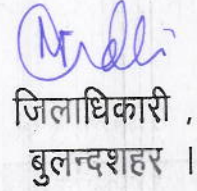 जिलाधिकारी ,
बुलन्दशहर ।